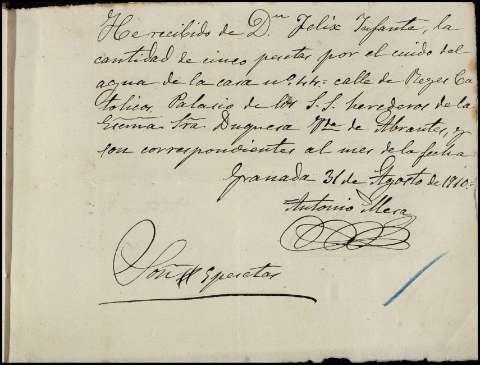 He recibido de Dn Felix Infante, la
cantidad de cinco pesetas por el cuido del
agua de la casa nº 44 calle de Reyes Ca
tolicos, Palacio de los S.S. herederos de la
Excma Sra Duquesa Vda de Abrantes, y
son correspondientes al mes de la fecha
Granada 31 de Agosto de 1910
Antonio Mesa
Son 5 pesetas